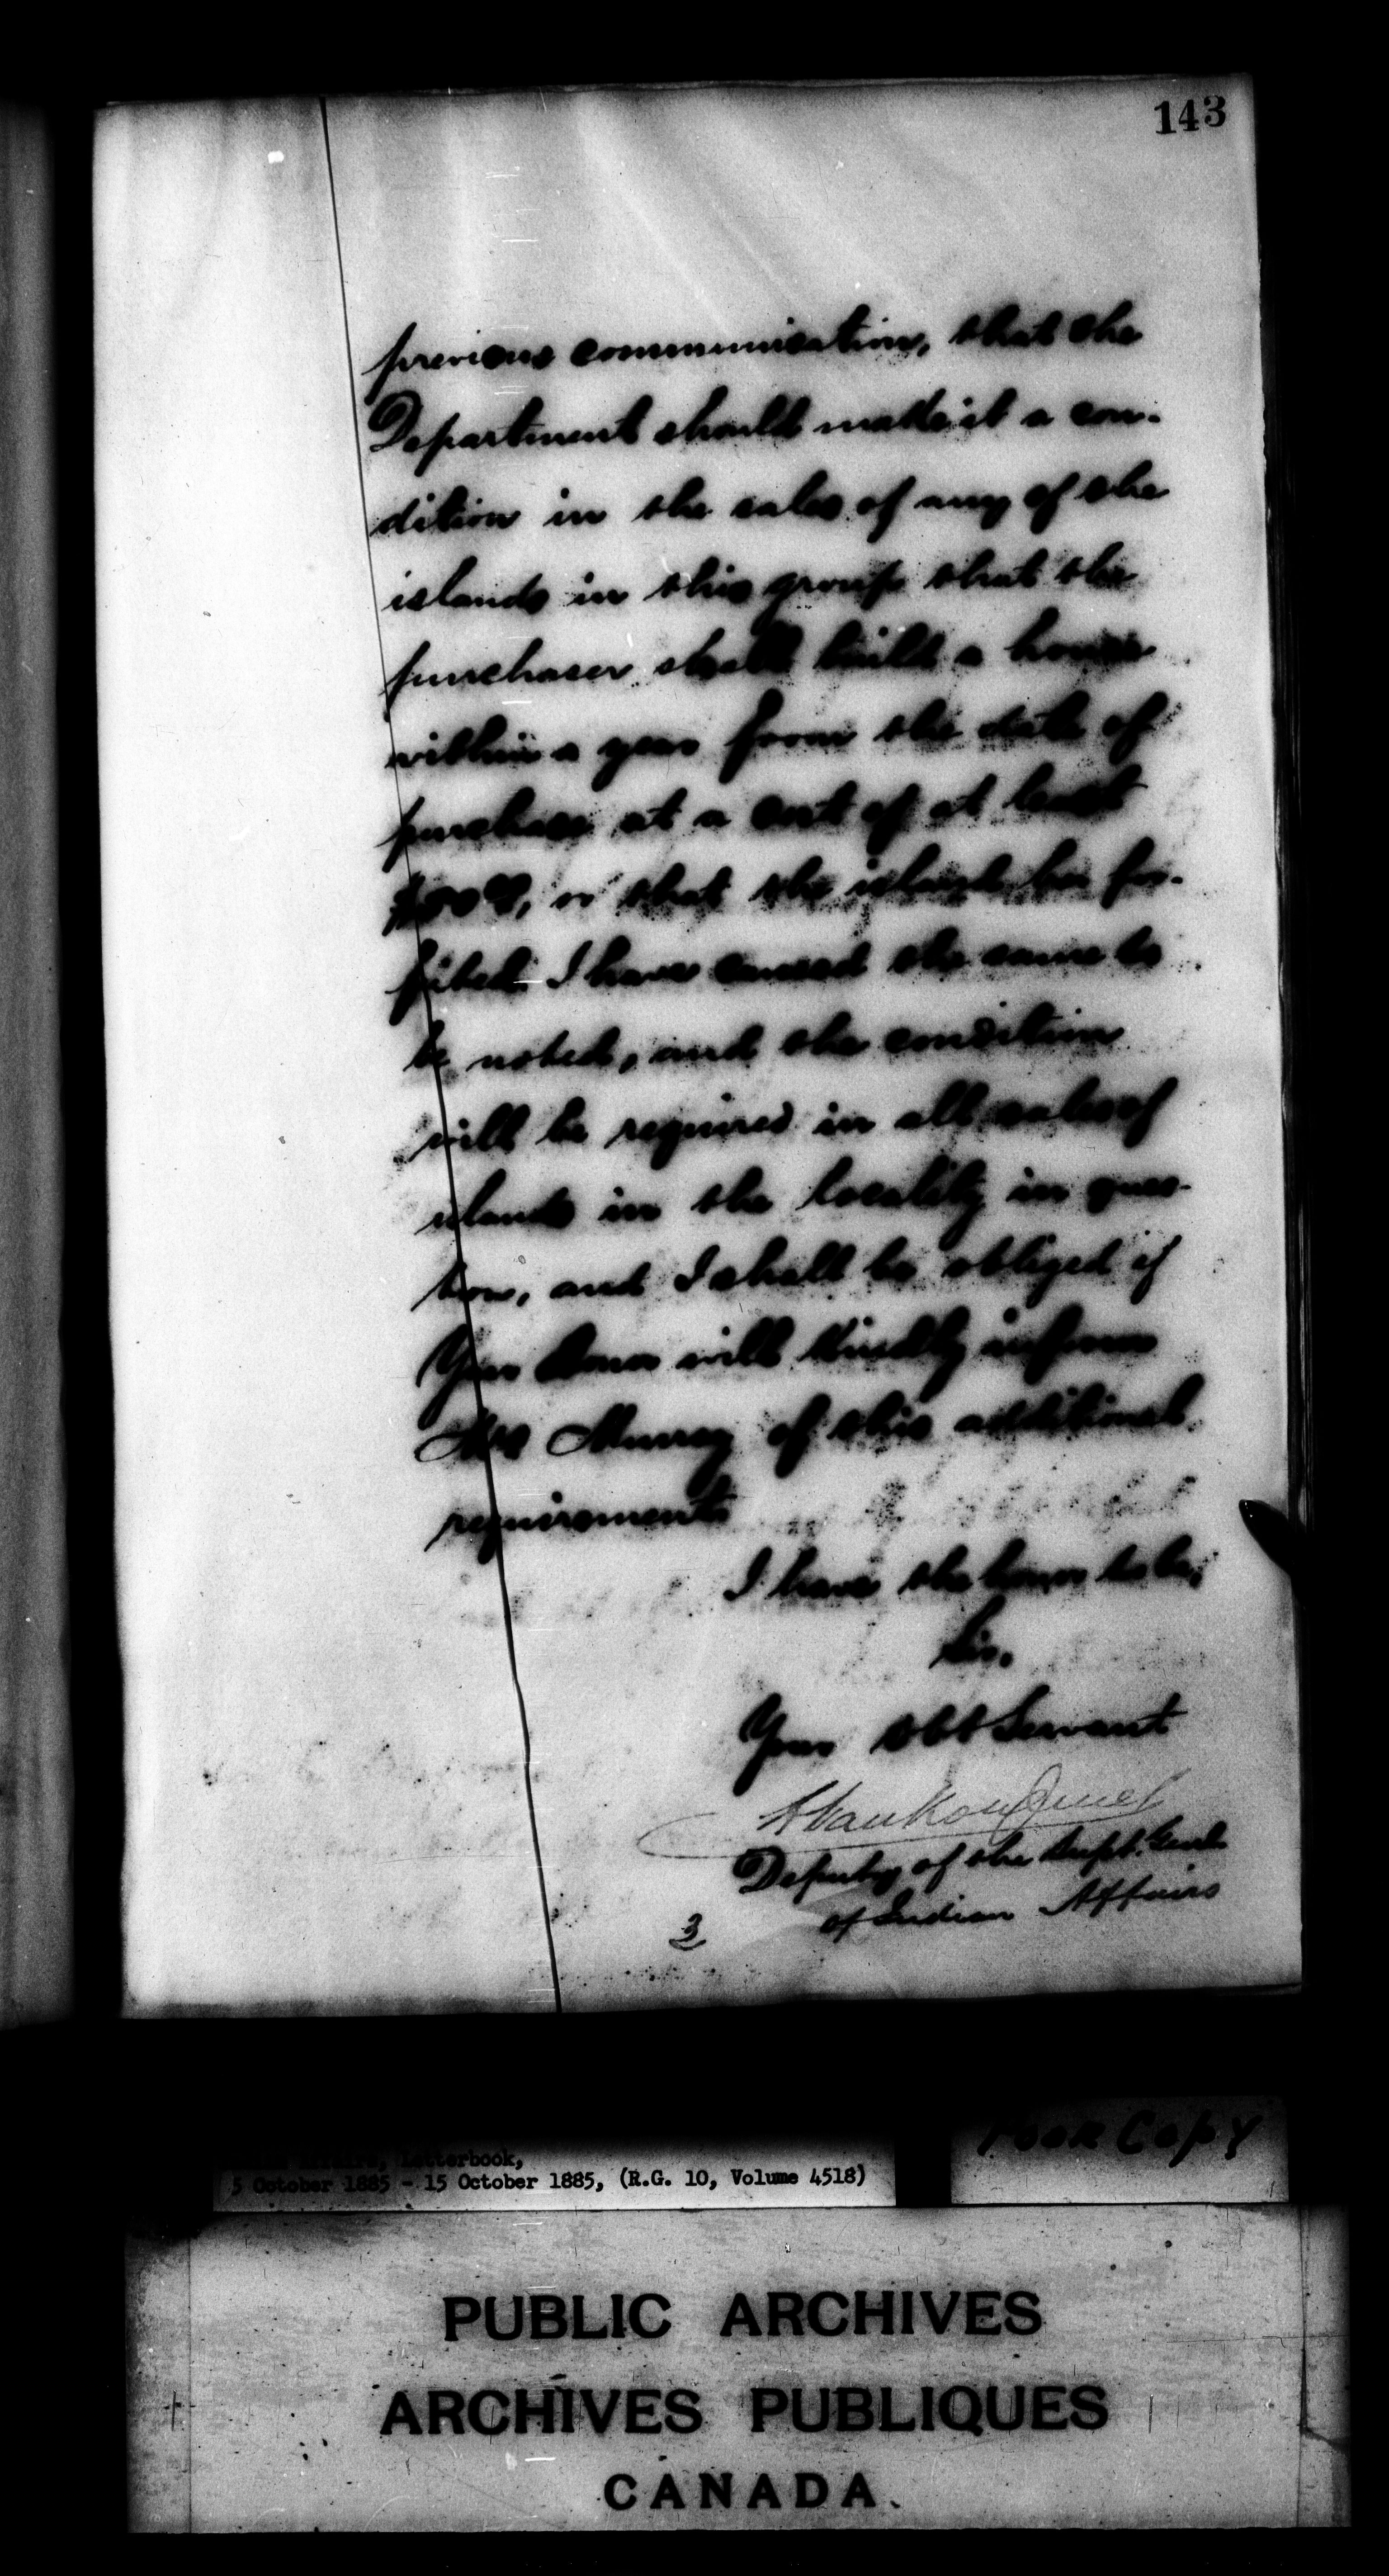 143
previous communication, that the
Department should make it a con-
dition in the sales of any of the
islands in this group that the
purchaser shall build a house
within a year from the date of
purchase at a cost of at least
or that the island be for-
fited. I have caused the same to
be noted, and the condition
will be required in all sales of
islands in the locality in ques-
tion, and I shall be obliged if
Your Honor will kindly inform
Murray of this additional
requirement
I have the honor to be,
Sir.
Your Obt Servant
L VanKoughnet
Deputy of the Supt. Genl.
of Indian Affairs
3
Poor Copy
Affairs, Letterbook,
5 October 1885 - 15 October 1885, (R.G. 10, Volume 4518)
PUBLIC ARCHIVES
ARCHIVES PUBLIQUES
CANADA